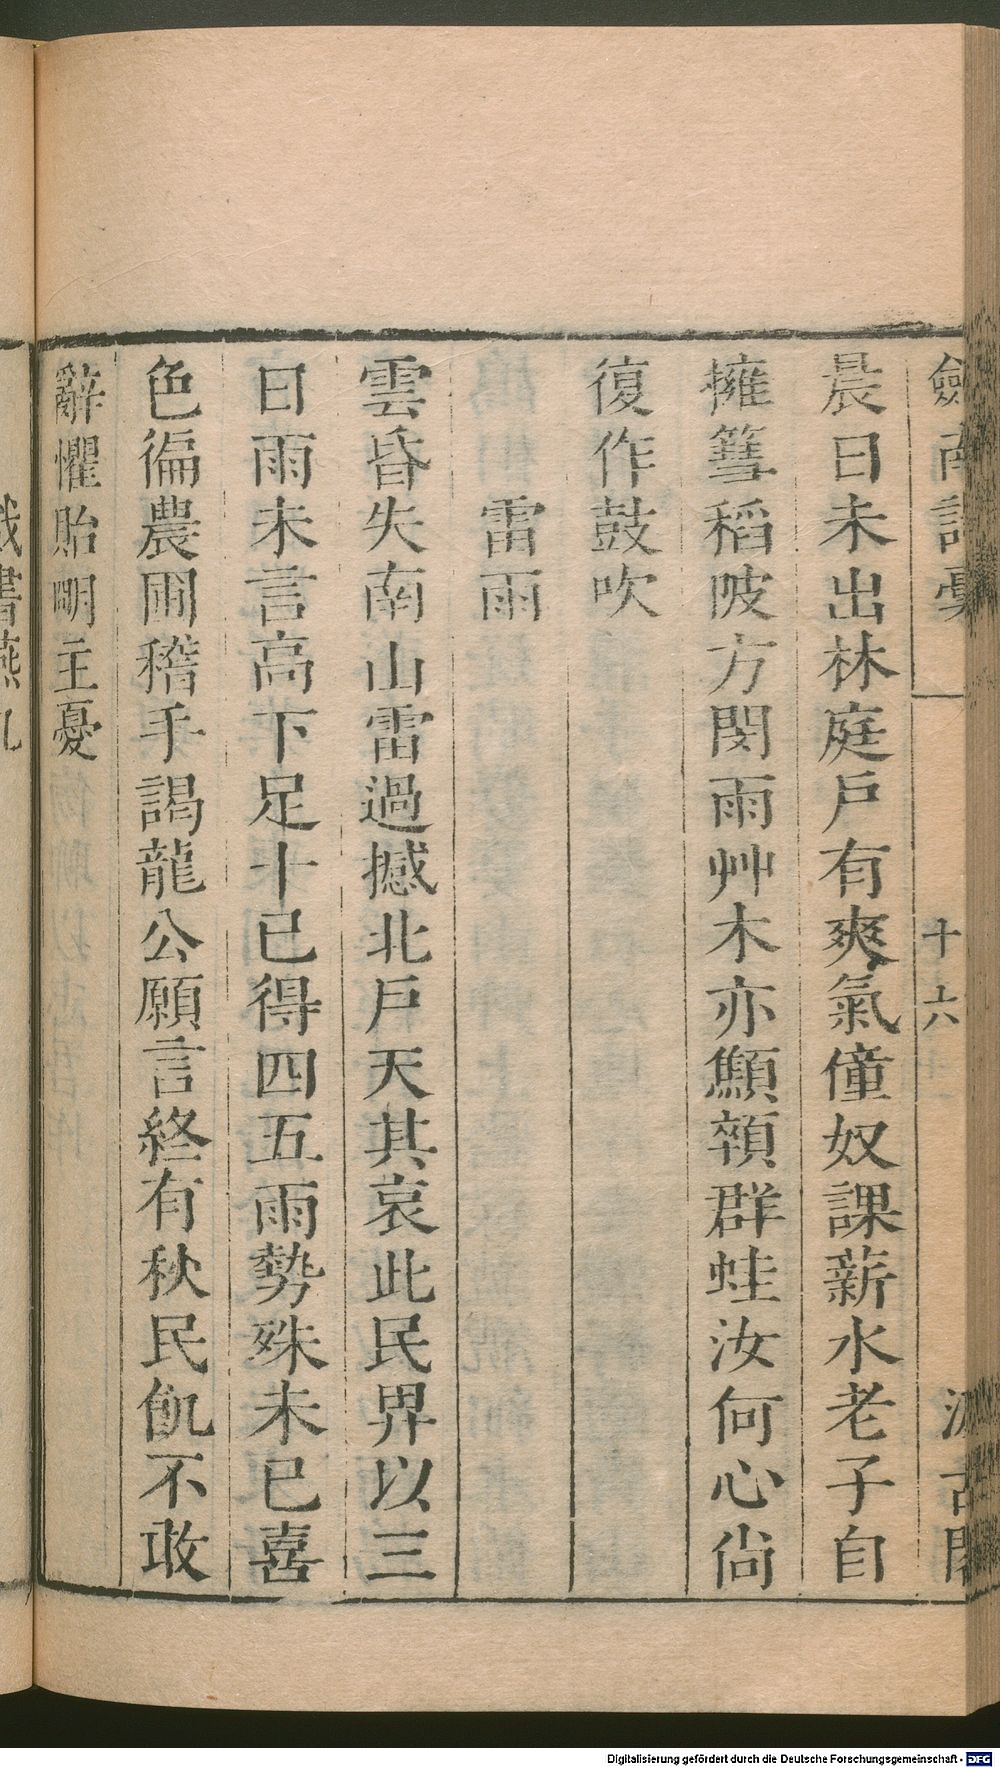 劍南詩稾 十六 汲古閣
晨日未出林庭戶有爽氣僮奴課薪水老子自
擁篲稻陂方閔雨艸木亦顦顇群蛙汝何心尙
復作鼓吹
雷雨
雲昏失南山雷過撼北戶天其哀此民畀以三
日雨未言高下足十已得四五雨勢殊未已喜
色徧農圃稽手謁龍公願言終有秋民飢不敢
辭懼貽明主憂
Digitalisierung gefördert durch die Deutsche Forschungsgemeinschaft - DFG